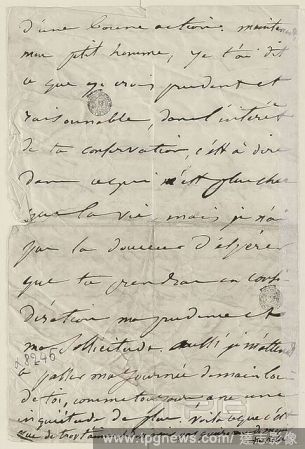 d'une bonne action. maintenant
mon ptit homme, je t'ai dit
ce que je crois prudent et
raisonnable, dans l'intérêt
de ta conservation, c'est à dire
dans ce qui m'est plus cher
que la vie, mais je n'ai
pas la douceur d'espérer
que tu prendras en consi-
dération ma prudence et
ma sollicitude. aussi je m'attens
à passer ma journée demain loin
de toi, comme toujours avec une
inquiétude de plus, voilà ce que c'est
que de
28246
www.tpgnews.com
達志影像